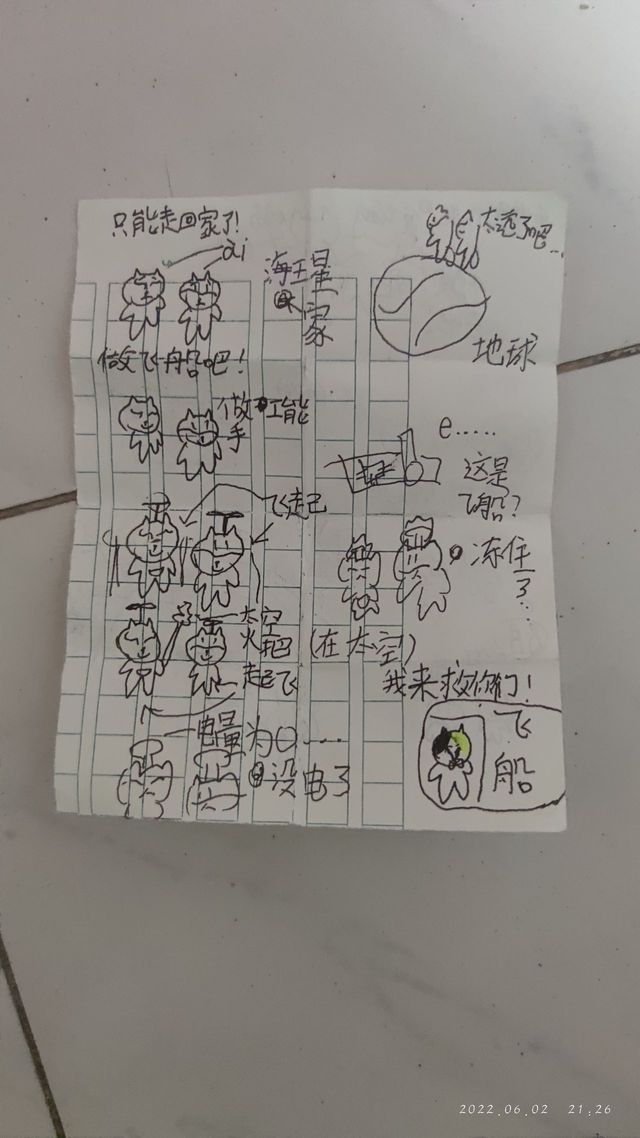 只能走回家了!
ai
海王星
家
做飞船吧!
做 功能
手
飞走己
太空
火把
起飞
电量为0……
没电了
太远了吧…
地球
e……
这是
飞船?
冻住
了…
(在太空)
我来救你们!
飞
船
2022.06.02 21:26